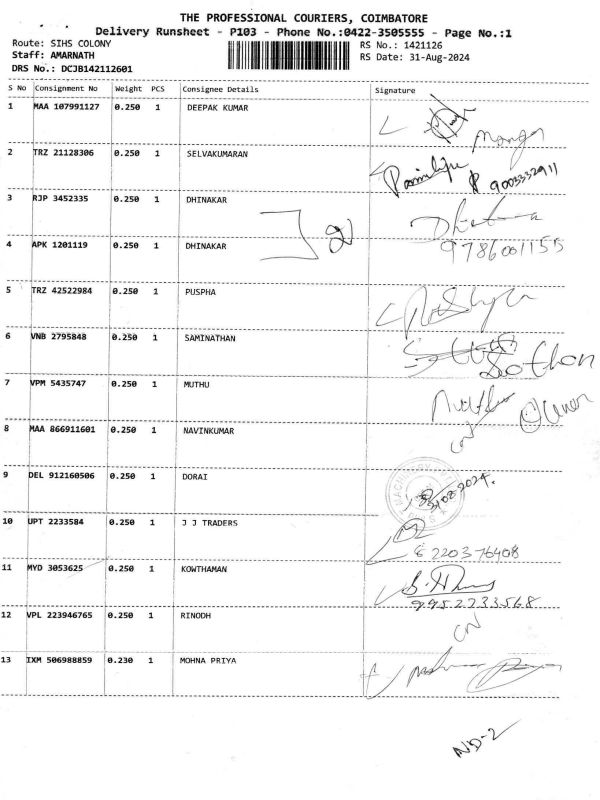 THE PROFESSIONAL COURIERS, COIMBATORE
Delivery Runsheet - P103 - Phone No.:0422-3505555 - Page No.:1
Route: SIHS COLONY
RS No.: 1421126
Staff: AMARNATH
RS Date: 31-Aug-2024
DRS No.: DCJB142112601
S No Consignment No Weight PCS Consignee Details Signature
1 MAA 107991127 0.250 1 DEEPAK KUMAR
2 TRZ 21128306 0.250 1 SELVAKUMARAN
9003332911
3 RJP 3452335 0.250 1 DHINAKAR
4 APK 1201119 0.250 1 DHINAKAR
2
9786001155
5 TRZ 42522984 0.250 1 PUSPHA
6 VNB 2795848 0.250 1 SAMINATHAN
7 VPM 5435747 0.250 1 MUTHU
8 MAA 866911601 0.250 1 NAVINKUMAR
9 DEL 912160506 0.250 1 DORAI
31/08/2024.
10 UPT 2233584 0.250 1 J J TRADERS
6220376408
11 MYD 3053625 0.250 1 KOWTHAMAN
9952733568
12 VPL 223946765 0.250 1 RINODH
CN
13 IXM 506988859 0.230 1 MOHNA PRIYA
ND-2